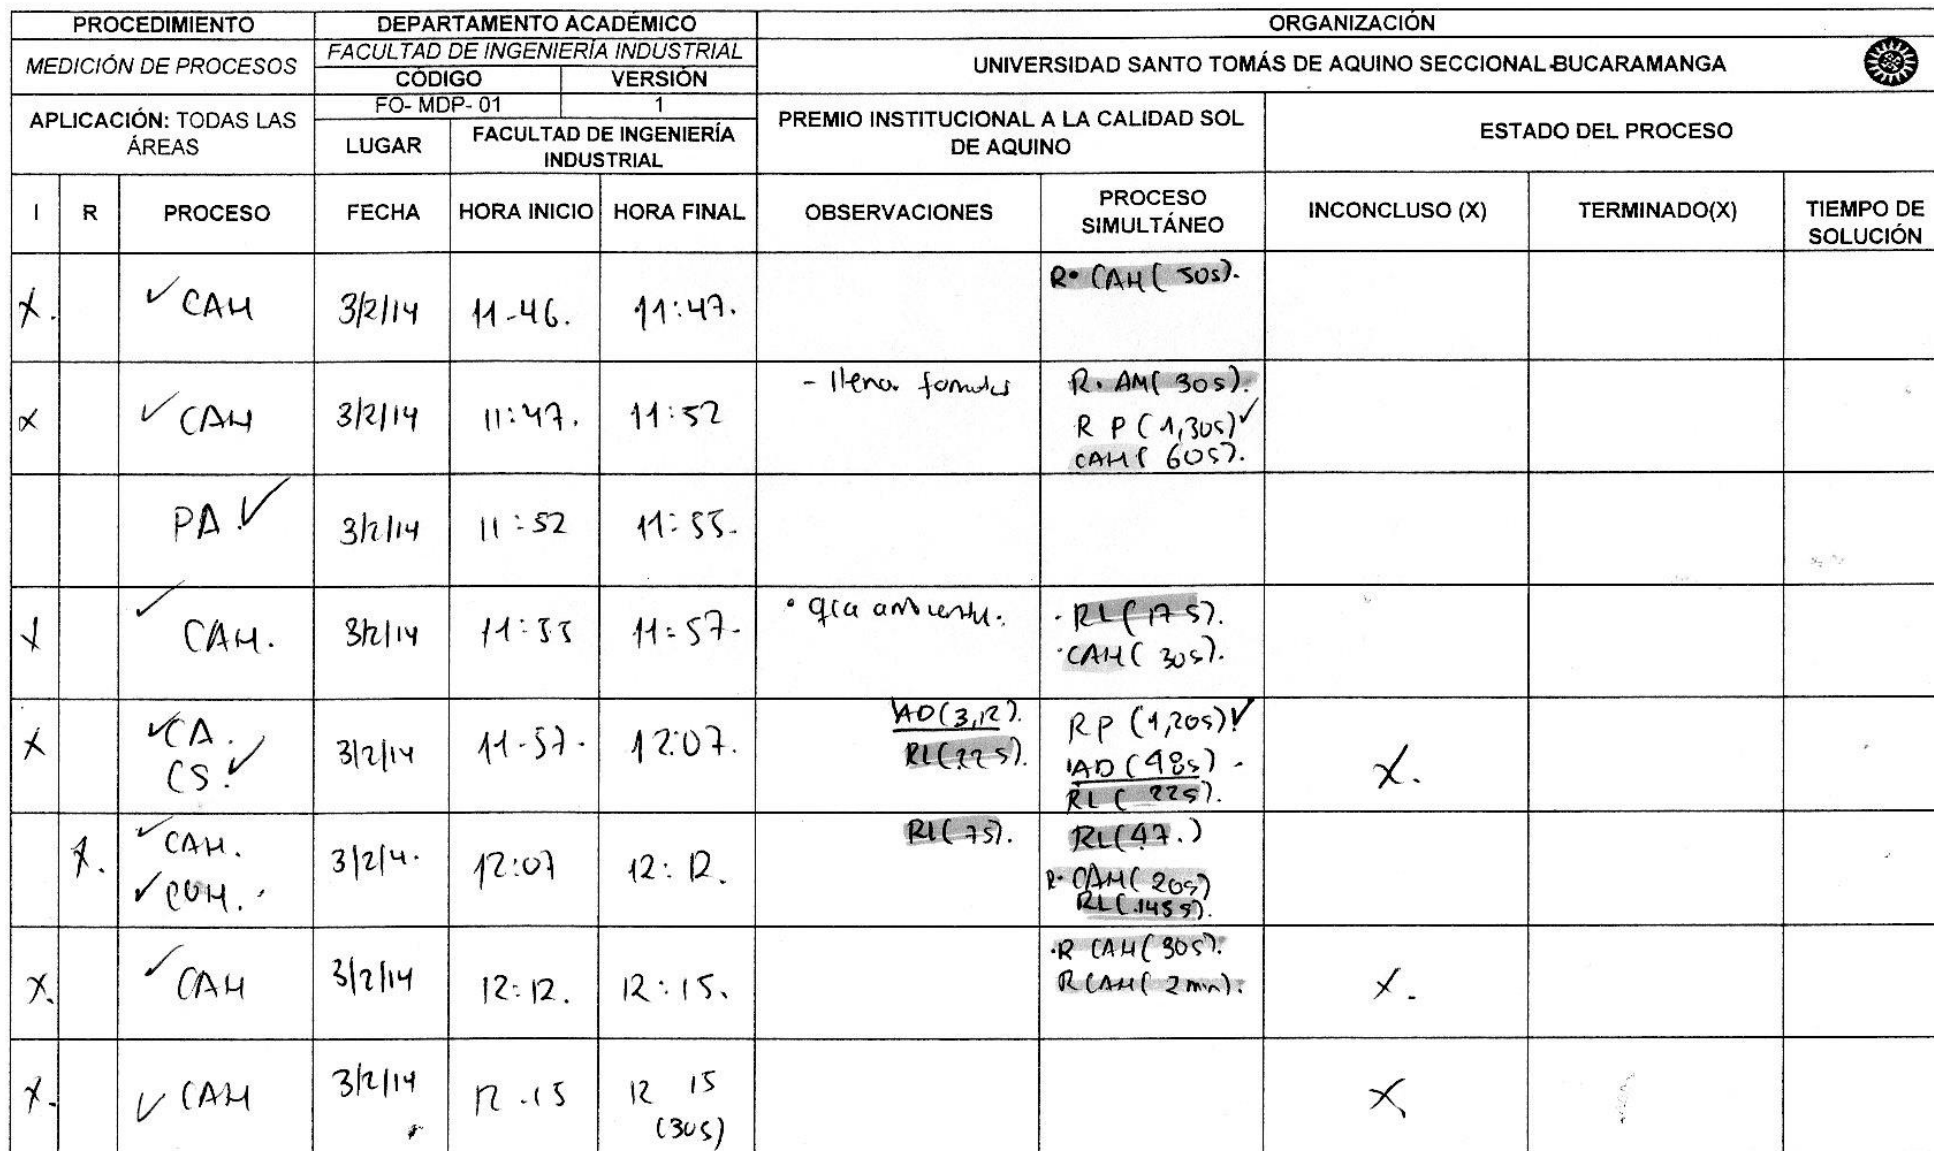 PROCEDIMIENTO DEPARTAMENTO ACADÉMICO ORGANIZACIÓN
MEDICIÓN DE PROCESOS FACULTAD DE INGENIERÍA INDUSTRIAL UNIVERSIDAD SANTO TOMÁS DE AQUINO SECCIONAL-BUCARAMANGA
CÓDIGO VERSIÓN
FO- MDP- 01 1
APLICACIÓN: TODAS LAS ÁREAS LUGAR FACULTAD DE INGENIERÍA INDUSTRIAL PREMIO INSTITUCIONAL A LA CALIDAD SOL DE AQUINO ESTADO DEL PROCESO
I R PROCESO FECHA HORA INICIO HORA FINAL OBSERVACIONES PROCESO SIMULTÁNEO INCONCLUSO (X) TERMINADO(X) TIEMPO DE SOLUCIÓN
X. ✓ CAM 3/2/14 11-46. 11:47. R• CAM( 50s).
X ✓ CAM 3/2/14 11:47. 11:52 - llenar R. AM( 30s).
R P (1,30s)✓
CAM( 60s).
PA ✓ 3/2/14 11:52 11:53.
X ✓ CAM. 3/2/14 11:53 11:57. • RL(17s).
•CAM( 30s).
X ✓CA. 3/2/14 11-57. 12:07. IAD(3,12). RP (1,20s)✓ X.
CS.✓ RL(22s). IAD (48s).
RL( 22s).
X. ✓CAM. 3/2/4. 12:07 12:12. RL(7s). RL(47.)
✓COM. R• CAM( 20s)
RL(.145s).
X. ✓CAM 3/2/14 12:12. 12:15. •R CAM( 30s). X.
R CAM( 2min).
X. ✓CAM 3/2/14 12.15 12 15 X
(30s)